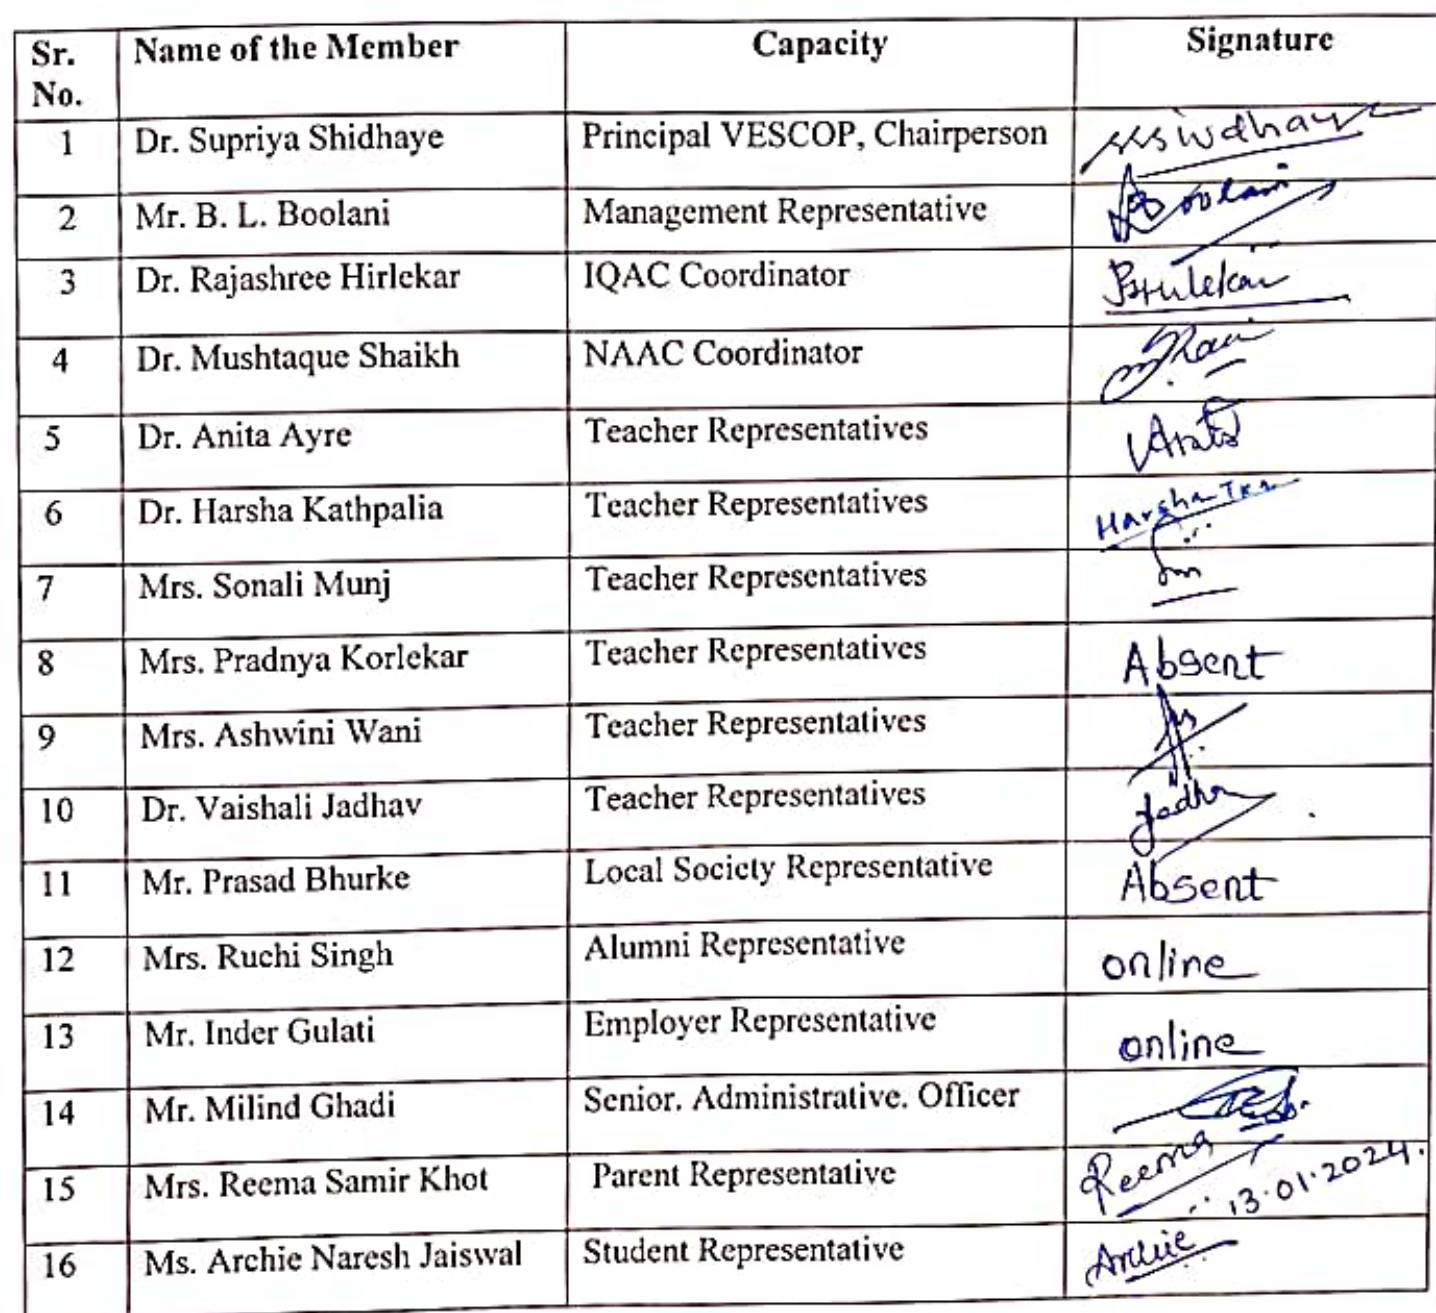 Sr. No. Name of the Member Capacity Signature
1 Dr. Supriya Shidhaye Principal VESCOP, Chairperson
2 Mr. B. L. Boolani Management Representative Boolani
3 Dr. Rajashree Hirlekar IQAC Coordinator
4 Dr. Mushtaque Shaikh NAAC Coordinator
5 Dr. Anita Ayre Teacher Representatives
6 Dr. Harsha Kathpalia Teacher Representatives Harsha
7 Mrs. Sonali Munj Teacher Representatives
8 Mrs. Pradnya Korlekar Teacher Representatives Absent
9 Mrs. Ashwini Wani Teacher Representatives
10 Dr. Vaishali Jadhav Teacher Representatives
11 Mr. Prasad Bhurke Local Society Representative Absent
12 Mrs. Ruchi Singh Alumni Representative online
13 Mr. Inder Gulati Employer Representative online
14 Mr. Milind Ghadi Senior. Administrative. Officer
15 Mrs. Reema Samir Khot Parent Representative Reema 13.01.2024.
16 Ms. Archie Naresh Jaiswal Student Representative Archie